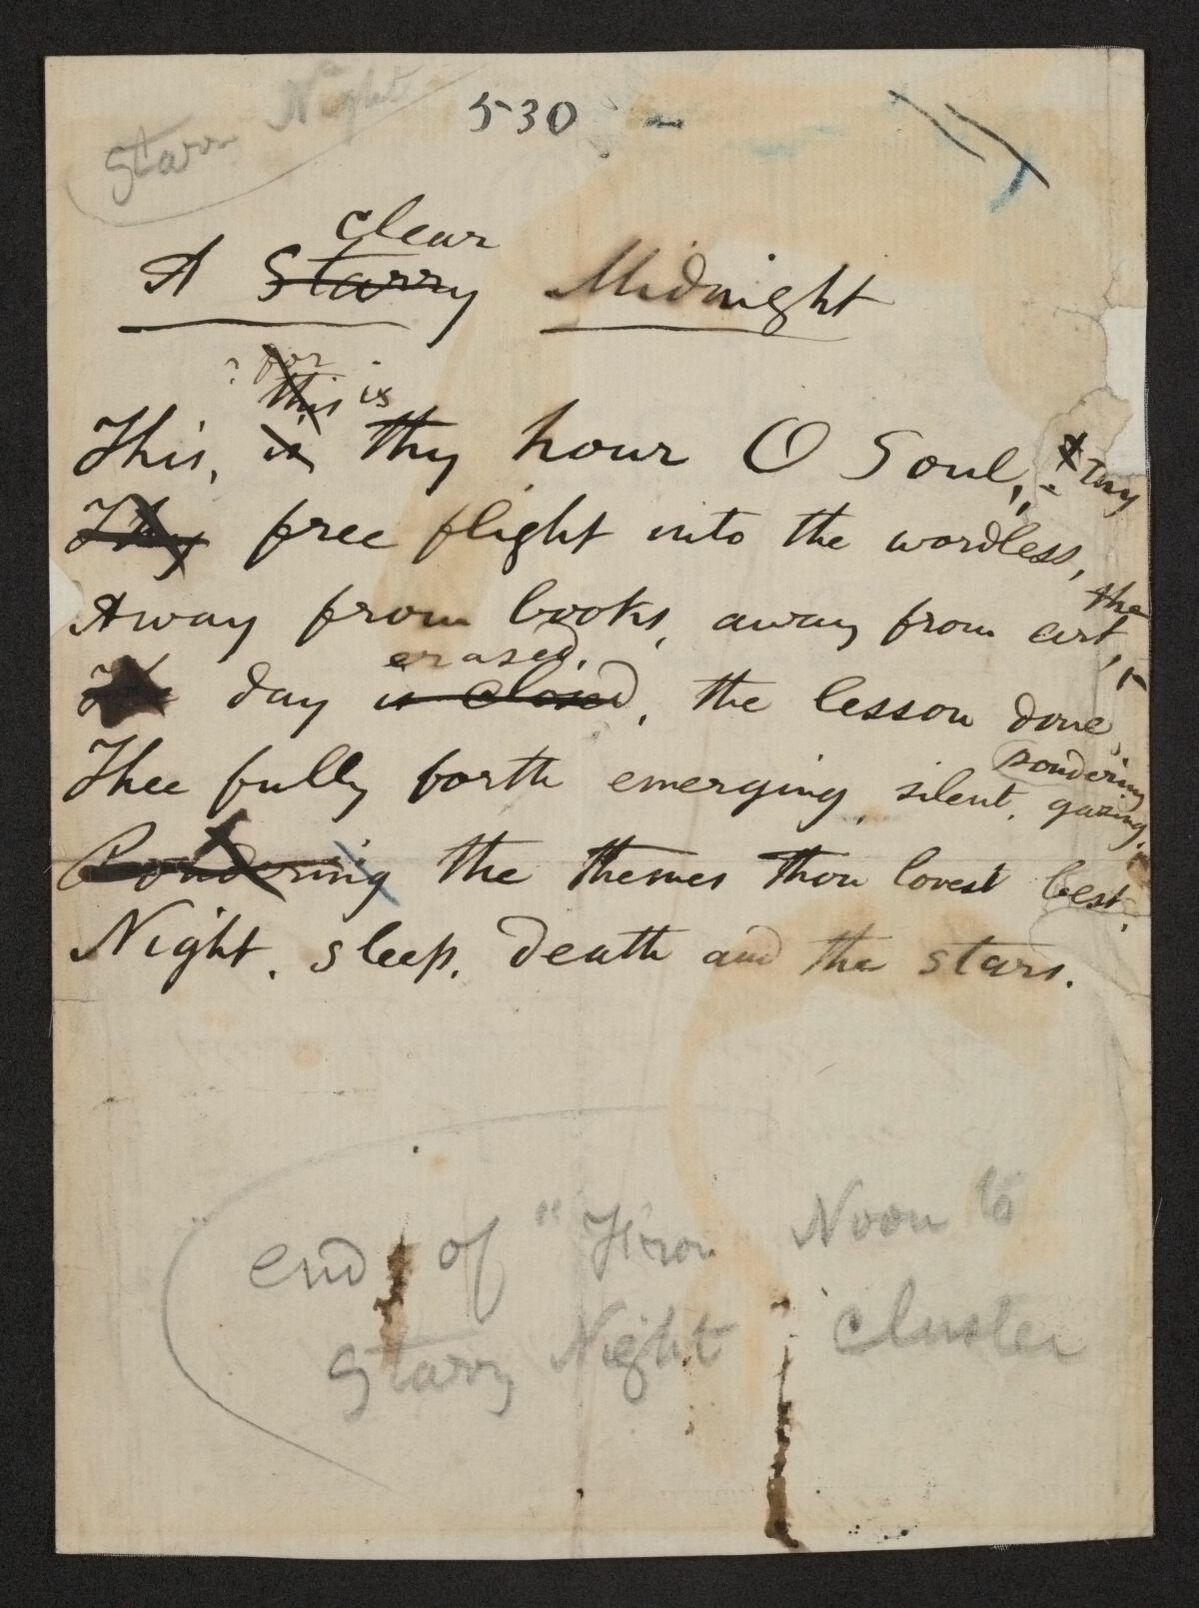 Starry Night
530
clear
A Starry Midnight
? for
this is
This, is thy hour O Soul, - thy
Thy free flight into the wordless,
Away from books, away from art, the
erased,
The day is closed, the lesson done,
pondering
Thee fully forth emerging, silent, gazing,
Pondering the themes thou lovest best,
Night, sleep, death and the stars.
end of "From Noon to
Starry Night cluster